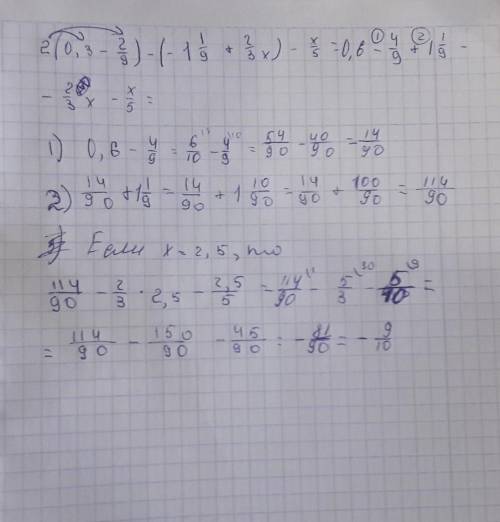 2(0,3 - 2/9) - (-1 1/9 + 2/3 x) - x/5 = 0,6 - ① 4/9 + ② 1 1/9 -
- 2/3 x - x/5 =
1) 0,6 - 4/9 = 6/10 - 4/9 = 54/90 - 40/90 = 14/90
2) 14/90 + 1 1/9 = 14/90 + 1 10/90 = 14/90 + 100/90 = 114/90
Если x = 2,5, то
114/90 - 2/3 · 2,5 - 2,5/5 = 114/90 - 5/3 - 5/10 =
= 114/90 - 150/90 - 45/90 = - 81/90 = - 9/10